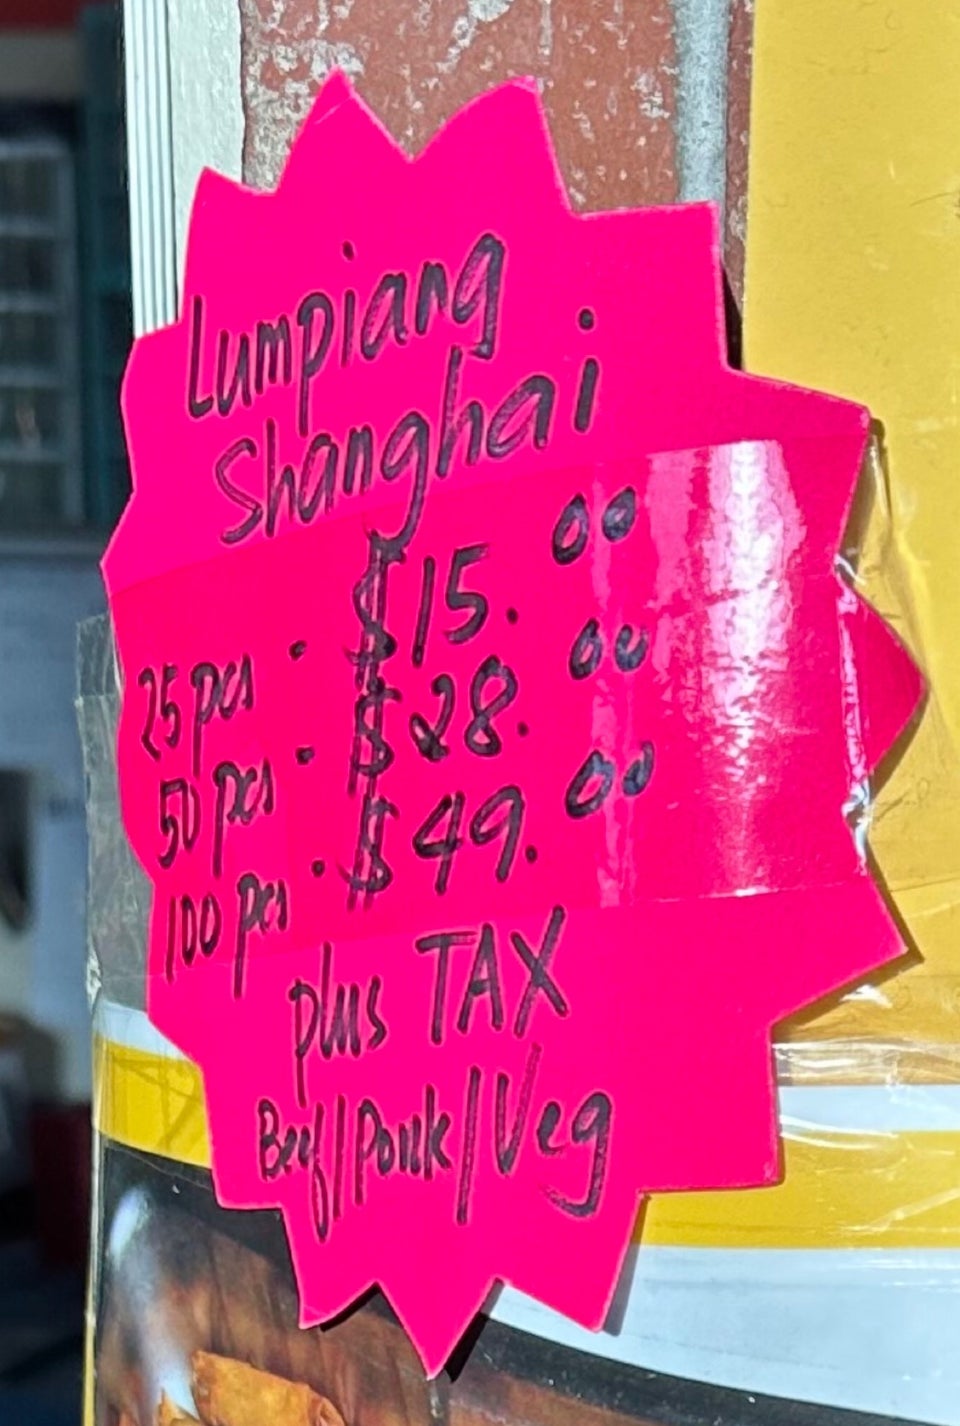 Lumpiang
Shanghai
25 pcs - $15.00
50 pcs - $28.00
100 pcs . $49.00
plus TAX
Beef/Pork/Veg